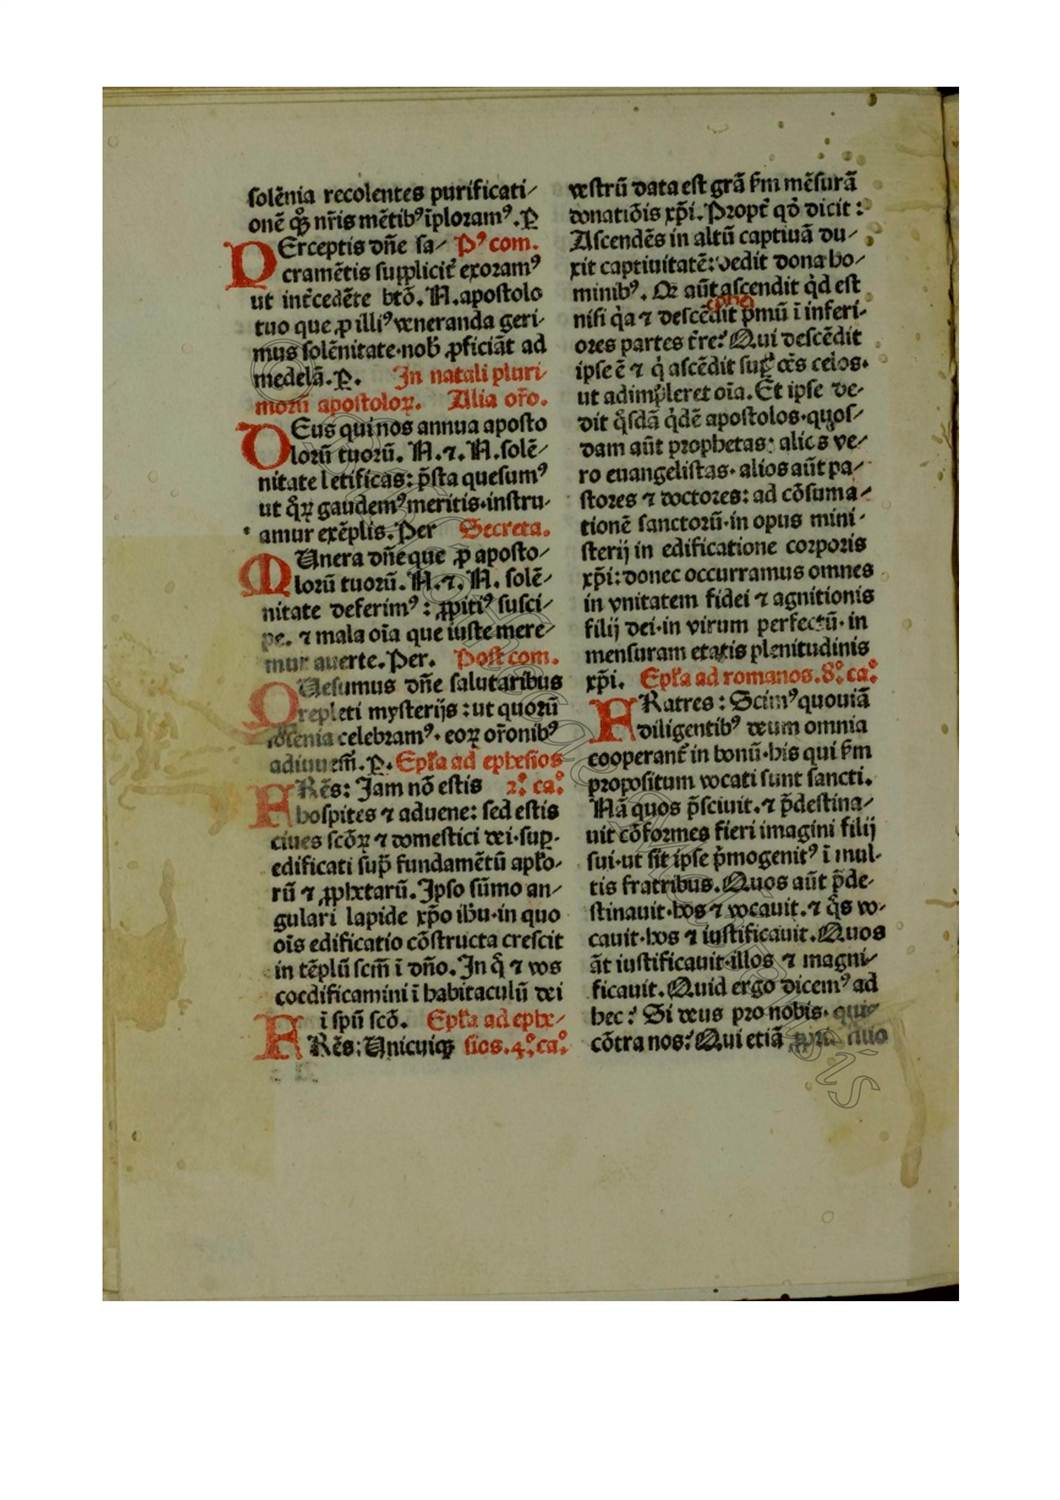 solēnia recolentes purificati⸗
onē qͦꝫ nr̄is mētibꝰ īploramꝰ. P̄
PErceptis dn̄e sa⸗ Pꝰ com.
cramētis supplicit̄ exoramꝰ
ut int̄cedēte btō. N. apostolo
tuo que ꝓ illiꝰ veneranda geri⸗
mus solēnitate·nob̄ ꝓficiāt ad
medelā. P̄. In natali pluri⸗
morū apostoloꝝ. Alia or̄o.
DEus qui nos annua aposto
lorū tuorū. N. ⁊. N. solē⸗
nitate letificas: p̄sta quesumꝰ
ut qͣꝝ gaudemꝰ meritis·instru⸗
amur exēplis. Per Secreta.
MUnera dn̄e que ꝓ aposto⸗
lorū tuorū. N. ⁊. N. solē⸗
nitate deferimꝰ: ꝓpitiꝰ susci⸗
pe. ⁊ mala oīa que iuste mere⸗
mur auerte. Per. Post com.
QUesumus dn̄e salutaribus
repleti mysterijs: ut quorū
solēnia celebramꝰ· eoꝝ or̄onibꝰ
adiuuem̄. P̄. Ep̄la ad ephesios
FRēs: Jam nō estis 2º. caº.
hospites ⁊ aduene: sed estis
ciues scōꝝ ⁊ domestici dei·sup̄⸗
edificati sup̄ fundamētū aplo⸗
rū ⁊ ꝓphetarū. Ipso sūmo an⸗
gulari lapide xp̄o ih̄u·in quo
oīs edificatio cōstructa crescit
in tēplū scm̄ ī dn̄o. In qͦ ⁊ vos
coedificamini ī habitaculū dei
ī sp̄ū scō. Ep̄la ad ephe⸗
FRēs: Unicuiqꝫ sios. 4º. caº.
vestrū data est grā s̄m mēsurā
donatiōis xp̄i. Propt̄ qd̄ dicit:
Ascendēs in altū captiuā du⸗
xit captiuitatē: dedit dona ho⸗
minibꝰ. Qꝫ aūt ascendit qͥd est
nisi qͥa ⁊ descēdit pͥmū ī inferi⸗
ores partes t̄re? Qui descēdit
ipse ē ⁊ qͥ ascēdit sup̄ oēs celos·
ut adimpleret oīa. Et ipse de⸗
dit qͦsdā qͥdē apostolos·quos⸗
dam aūt prophetas: alios ve⸗
ro euangelistas· alios aūt pa⸗
stores ⁊ doctores: ad cōsuma⸗
tionē sanctorū·in opus mini⸗
sterij in edificatione corporis
xp̄i: donec occurramus omnes
in vnitatem fidei ⁊ agnitionis
filij dei·in virum perfectū· in
mensuram etatis plenitudinis
xp̄i. Ep̄la ad romanos. 8º. caº.
FRatres: Scimꝰ quoniā
diligentibꝰ deum omnia
cooperant̄ in bonū·his qui s̄m
propositum vocati sunt sancti.
Nā quos p̄sciuit. ⁊ p̄destina⸗
uit cōformes fieri imagini filij
sui·ut sit ipse pͥmogenitꝰ ī mul⸗
tis fratribus. Quos aūt p̄de⸗
stinauit·hos ⁊ vocauit. ⁊ qͦs vo⸗
cauit·hos ⁊ iustificauit. Quos
āt iustificauit·illos ⁊ magni⸗
ficauit. Quid ergo dicemꝰ ad
hec? Si deus pro nobis· quis
cōtra nos? Qui etiā filio